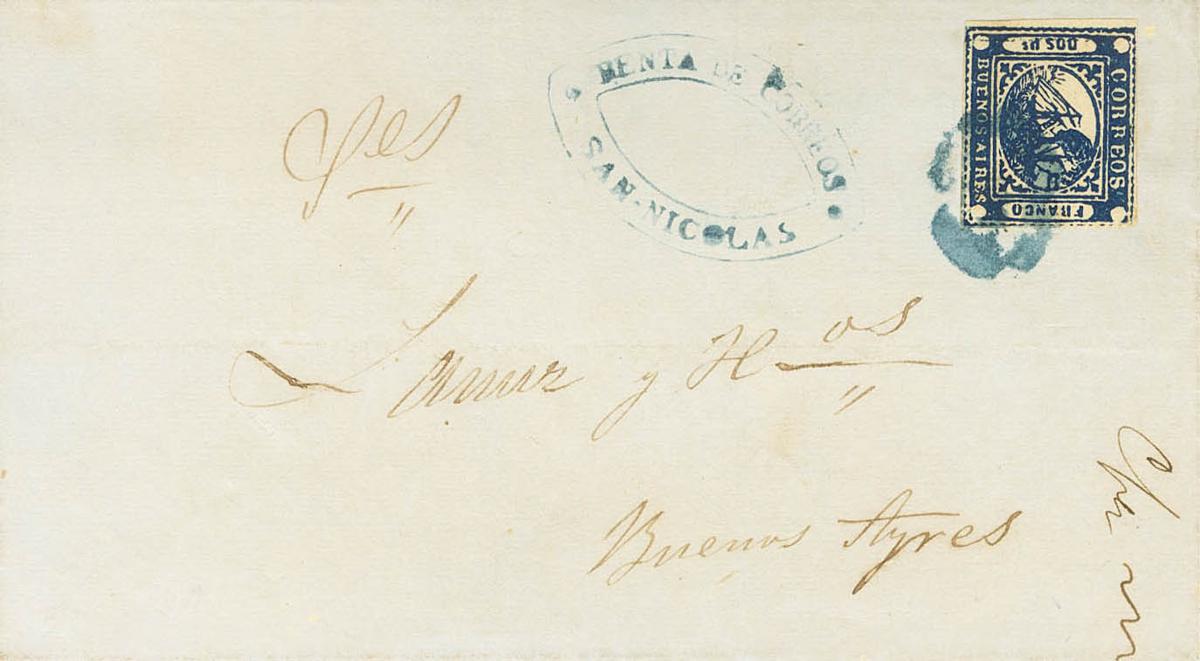 RENTA DE CORREOS
SAN-NICOLAS
CORREOS
DOS Ps
BUENOS AIRES
FRANCO
Sres
Lanuz y Hos
Buenos Ayres